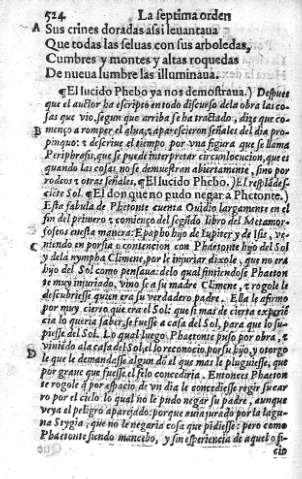 524 La septima orden
A Sus crines doradas assi leuantaua
Que todas las seluas con sus arboledas,
Cumbres y montes y altas roquedas
De nueua lumbre las illuminaua.
¶El lucido Phebo ya nos demostraua.) Despues
que el auctor ha escripto en todo discurso dela obra las co-
sas que vio, segun que arriba se ha tractado, dize que co-
B menço a romper el alua, & aparescieron señales del dia pro-
pinquo: & descriue el tiempo por vna figura que se llama
Periphrasis, que se puede interpretar circunlocucion, que es
quando las cosas no se demuestran abiertamente, sino por
rodeos & otras señales. ¶El lucido Phebo.) El resplades-
ciẽte Sol. ¶El don que no pudo negar a Phetonte.)
Esta fabula de Phetonte cuenta Ouidio largamente en el
fin del primero & comienço del segũdo libro del Metamor-
foseos enesta manera: Epapho hijo de Iupiter y de Isis, ve-
niendo en porfia o contencion con Phaetonte hijo del Sol
y dela nympha Climene, por le injuriar dixole, que no era
hijo del Sol como pensaua: delo qual sintiendose Phaeton
te muy injuriado, vino se a su madre Climene, & rogole le
descubriesse quien era su verdadero padre. Ella le afirmo
por muy cierto que era el Sol: que si mas de cierta experiẽ
cia lo queria saber, se fuesse a casa del Sol, para que lo su-
piesse del Sol. Lo qual luego Phaetonte puso por obra, &
D vinido ala casa del Sol, el lo reconocio por su hijo, y otorgo
le que le demandasse algun dõ el que mas le pluguiesse, que
por graue que fuesse, el selo concederia. Entonces Phaeton
te rogole q̃ por espacio de vn dia le concediesse regir su car
ro por el cielo: lo qual no le pudo negar su padre, aunque
veya el peligro aparejado: porque auia jurado por la lagu-
na Stygia, que no le negaria cosa que pidiesse: pero como
Phaetonte siendo mancebo, y sin esperiencia de aquel ofi-
cio